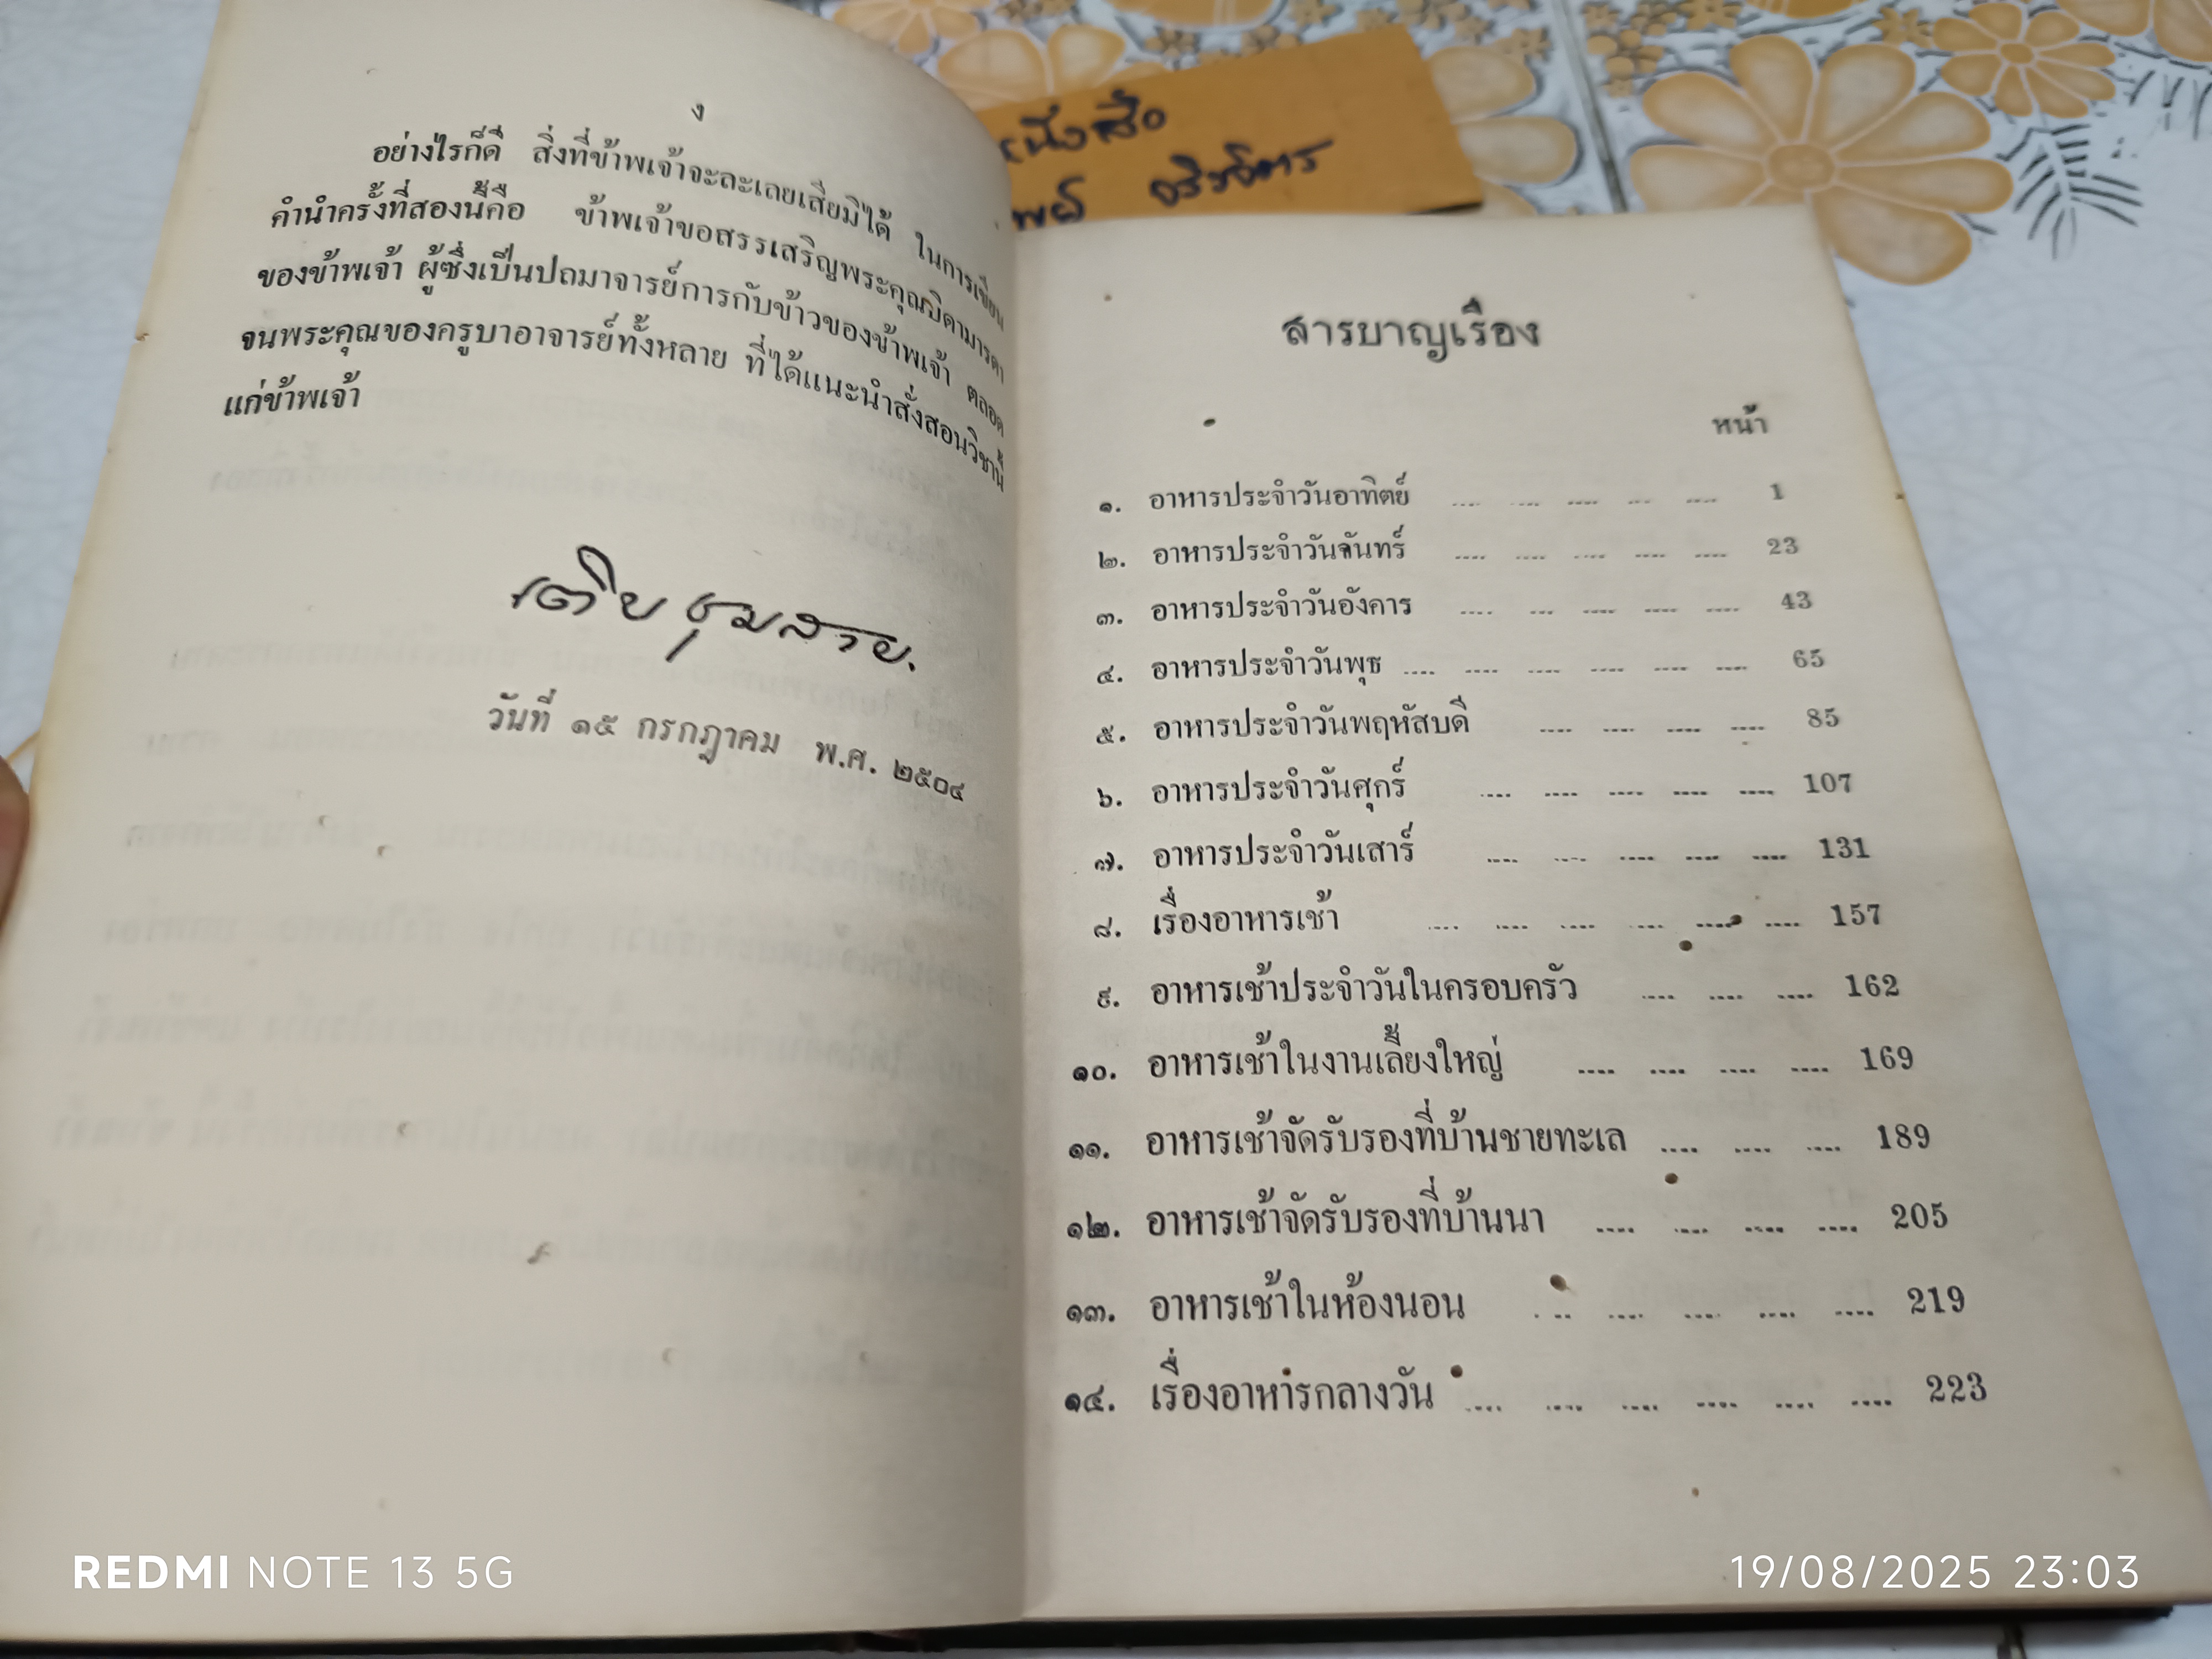 ง
อย่างไรก็ดี สิ่งที่ข้าพเจ้าจะละเลยเสียมิได้ ในการเขียน
คำนำครั้งที่สองนี้คือ ข้าพเจ้าขอสรรเสริญพระคุณบิดามารดา
ของข้าพเจ้า ผู้ซึ่งเป็นปถมาจารย์การกับข้าวของข้าพเจ้า ตลอด
จนพระคุณของครูบาอาจารย์ทั้งหลาย ที่ได้แนะนำสั่งสอนวิชานี้
แก่ข้าพเจ้า
เตบิบ ชุมสาย.
วันที่ ๑๕ กรกฎาคม พ.ศ. ๒๕๐๔
หนังสือ
สารบาญเรื่อง
หน้า
๑. อาหารประจำวันอาทิตย์ .... .... .... .... .... 1
๒. อาหารประจำวันจันทร์ .... .... .... .... .... 23
๓. อาหารประจำวันอังคาร .... .... .... .... .... 43
๔. อาหารประจำวันพุธ .... .... .... .... .... .... 65
๕. อาหารประจำวันพฤหัสบดี .... .... .... .... 85
๖. อาหารประจำวันศุกร์ .... .... .... .... .... 107
๗. อาหารประจำวันเสาร์ .... .... .... .... .... 131
๘. เรื่องอาหารเช้า .... .... .... .... .... .... 157
๙. อาหารเช้าประจำวันในครอบครัว .... .... .... 162
๑๐. อาหารเช้าในงานเลี้ยงใหญ่ .... .... .... .... 169
๑๑. อาหารเช้าจัดรับรองที่บ้านชายทะเล .... .... .... 189
๑๒. อาหารเช้าจัดรับรองที่บ้านนา .... .... .... .... 205
๑๓. อาหารเช้าในห้องนอน .... .... .... .... .... 219
๑๔. เรื่องอาหารกลางวัน .... .... .... .... .... .... 223
REDMI NOTE 13 5G
19/08/2025 23:03